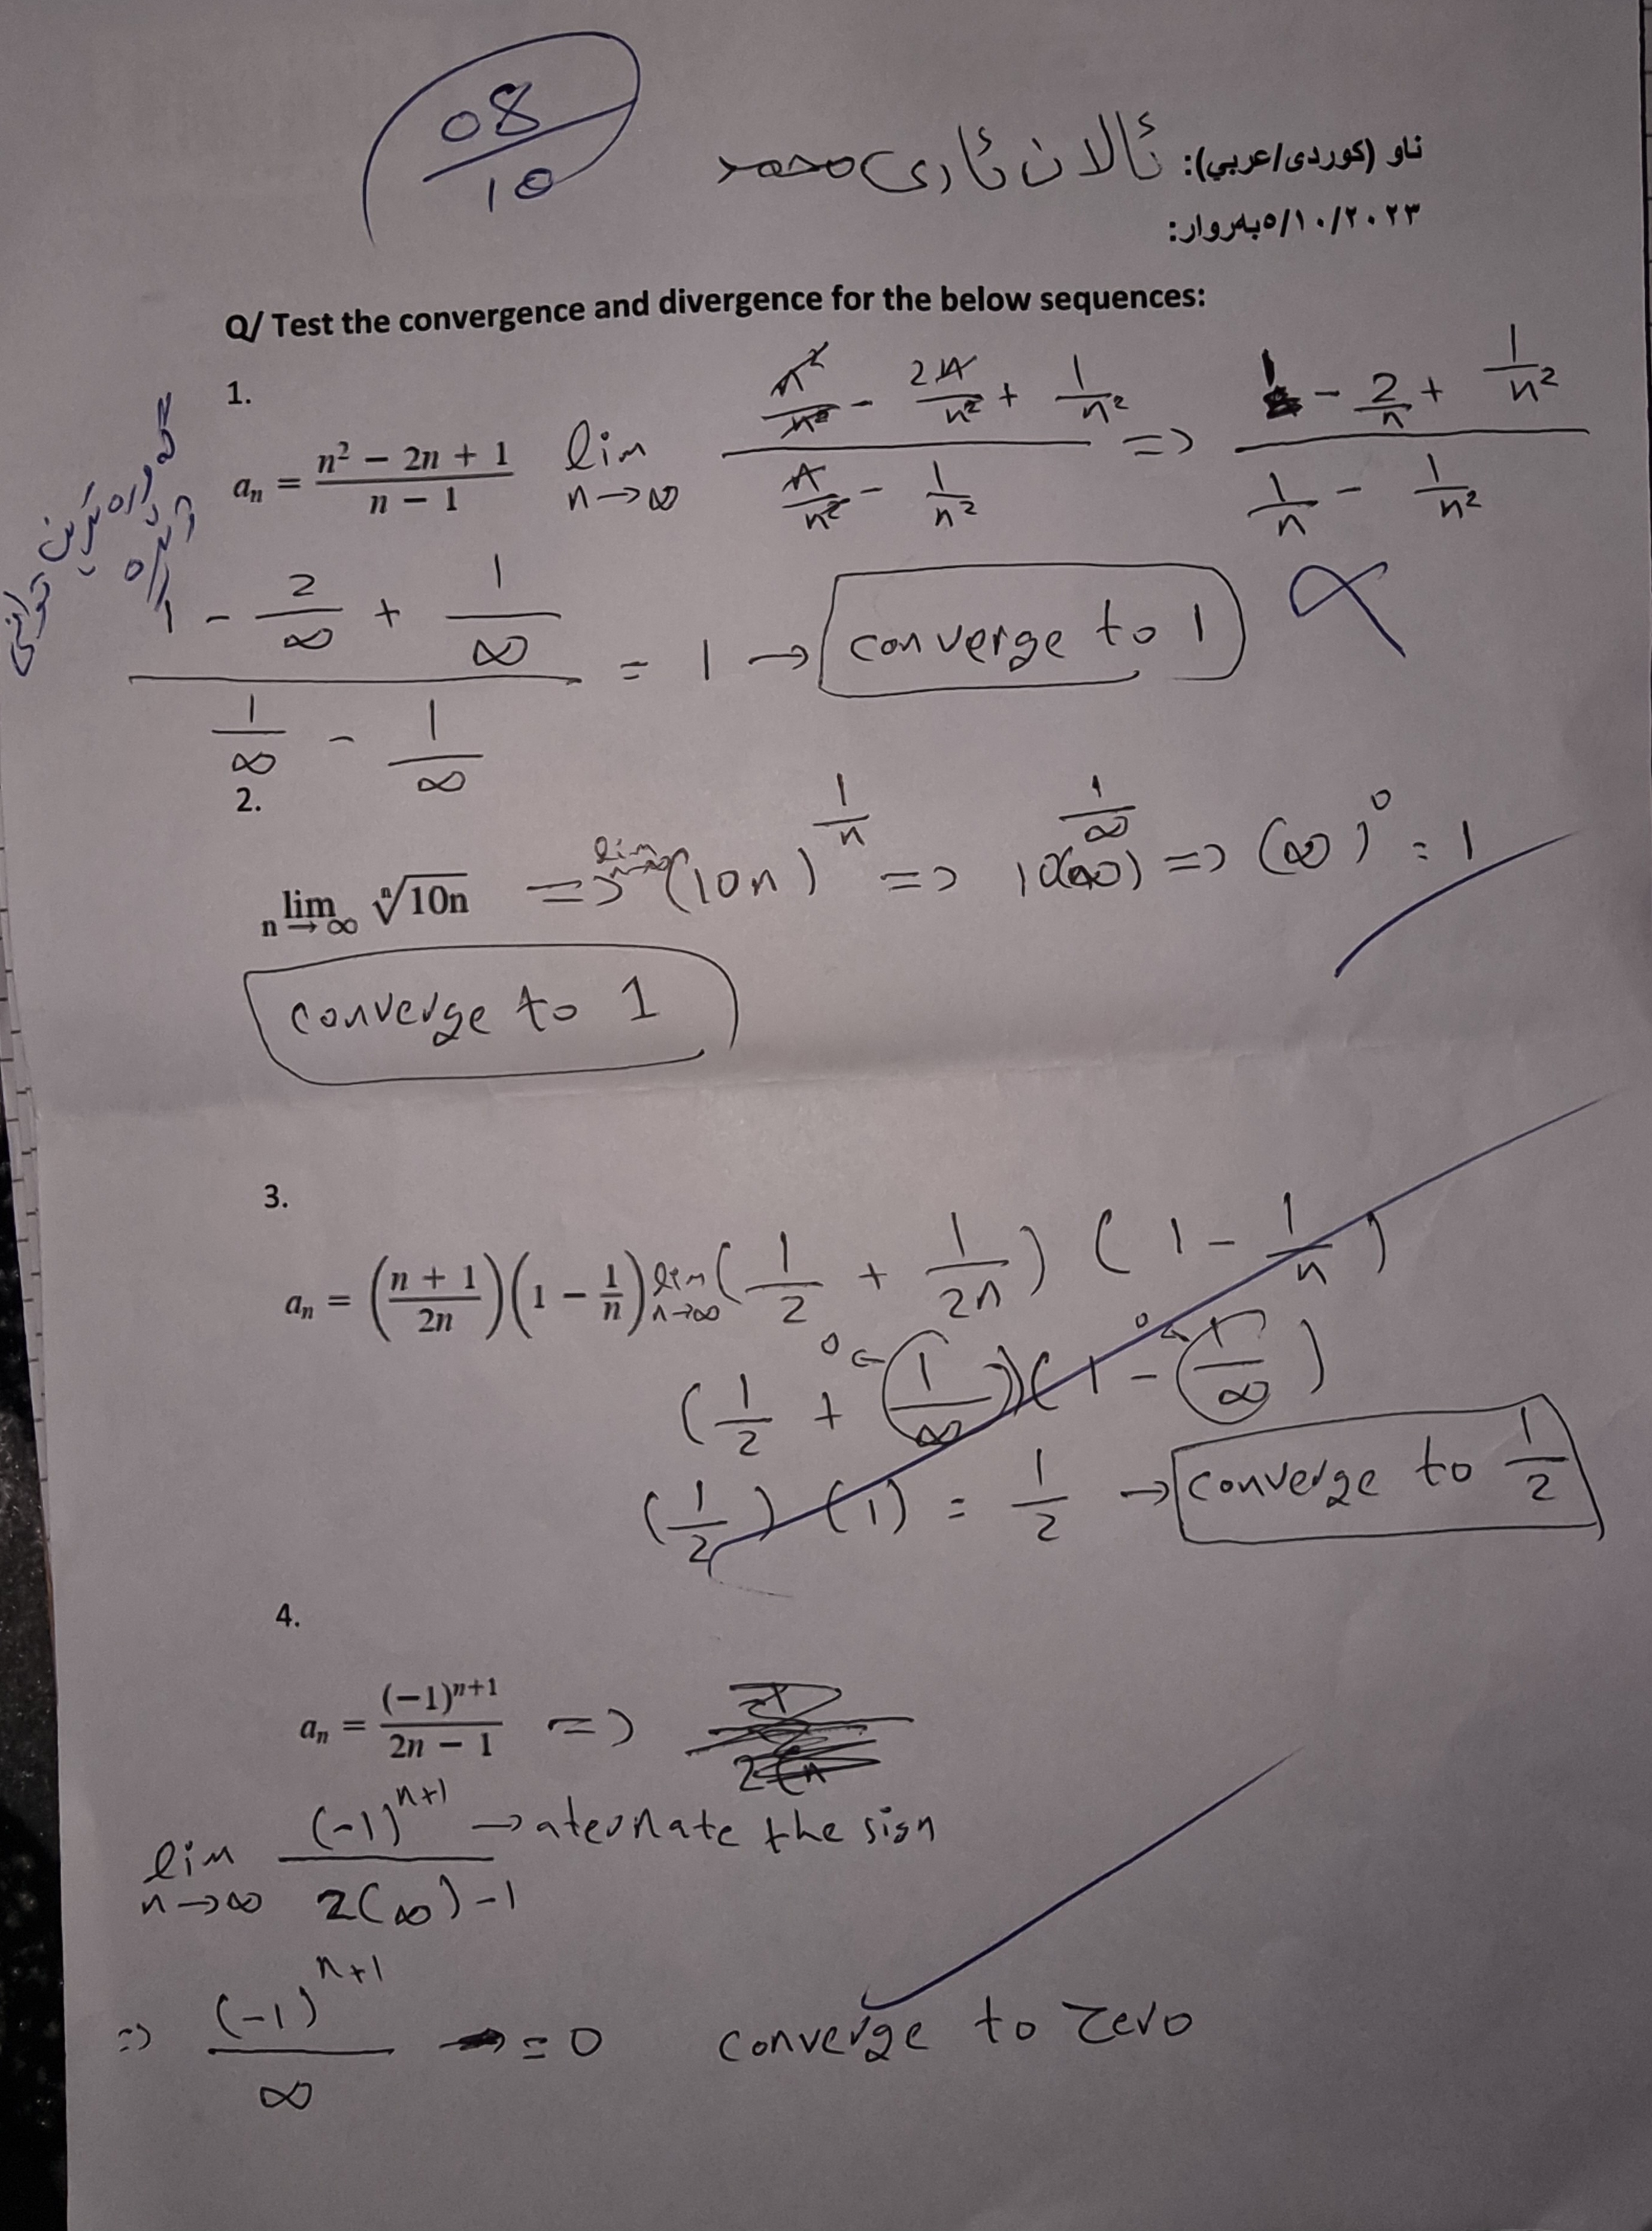 08/10
ناو (كوردی/عربي): ئالان ئاری محمد
٥/١٠/٢٠٢٣بەروار:
Q/ Test the convergence and divergence for the below sequences:
1.
a_n = (n² − 2n + 1)/(n − 1) lim n→∞ (n²/n² − 2n/n² + 1/n²)/(n/n² − 1/n²) => (1 − 2/n + 1/n²)/(1/n − 1/n²)
(1 − 2/∞ + 1/∞)/(1/∞ − 1/∞) = 1 → converge to 1
2.
lim n→∞ ⁿ√10n => lim n→∞ (10n)^(1/n) => 10(∞)^(1/∞) => (∞)^0 = 1
converge to 1
3.
a_n = ((n + 1)/2n)(1 − 1/n) lim n→∞ (1/2 + 1/2n) (1 − 1/n)
(1/2 + 1/∞ → 0)(1 − 1/∞ → 0)
(1/2) (1) = 1/2 → converge to 1/2
4.
a_n = (−1)^(n+1)/(2n − 1) =>
lim n→∞ (-1)^(n+1)/(2(∞)-1) → aternate the sign
=> (-1)^(n+1)/∞ = 0 converge to zero